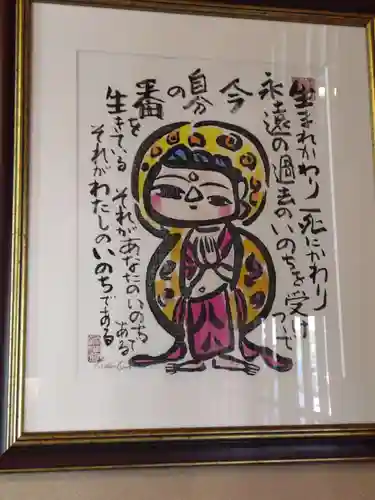 生まれかわり死にかわり
永遠の過去のいのちを受けついで
今
自分の
番を
生きている
それがあなたのいのちである
それがわたしのいのちである